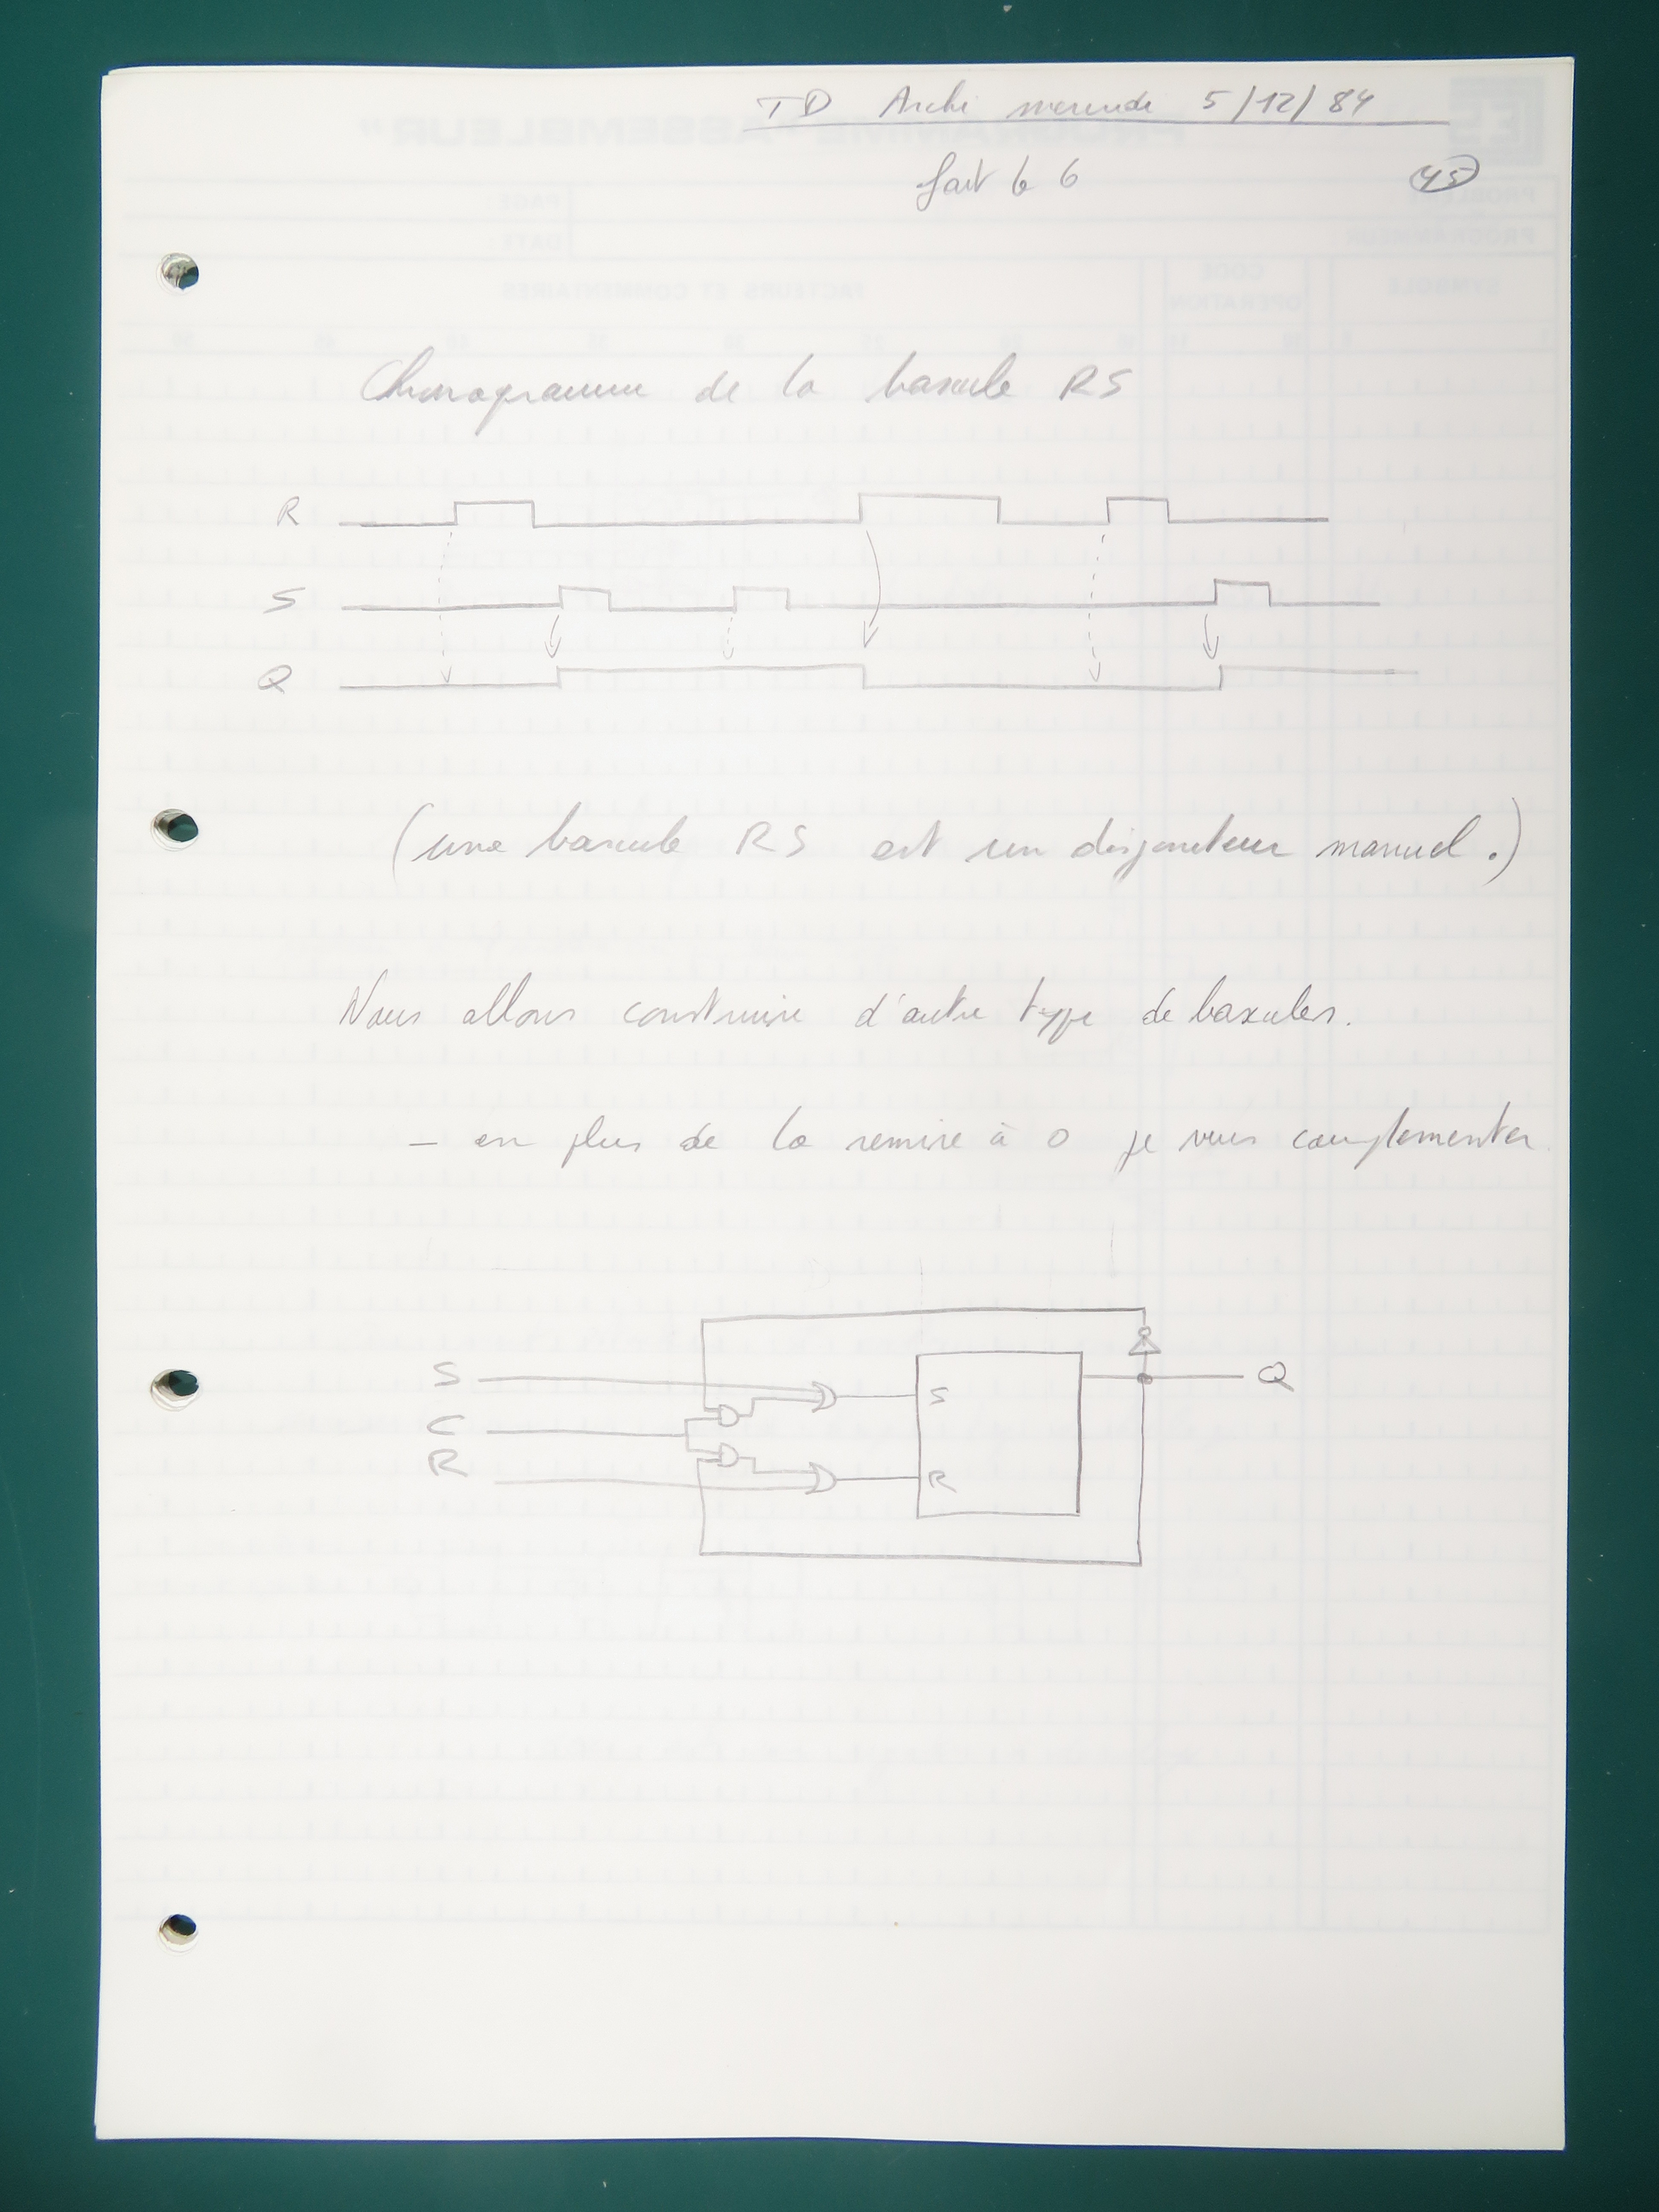 TD Archi mercredi 5/12/84
fait le 6
45
Chronogramme de la bascule RS
R
S
Q
(une bascule RS est un disjoncteur manuel.)
Nous allons construire d'autre type de bascules.
- en plus de la remise à 0 je veux complementer
S
C
R
S
R
Q